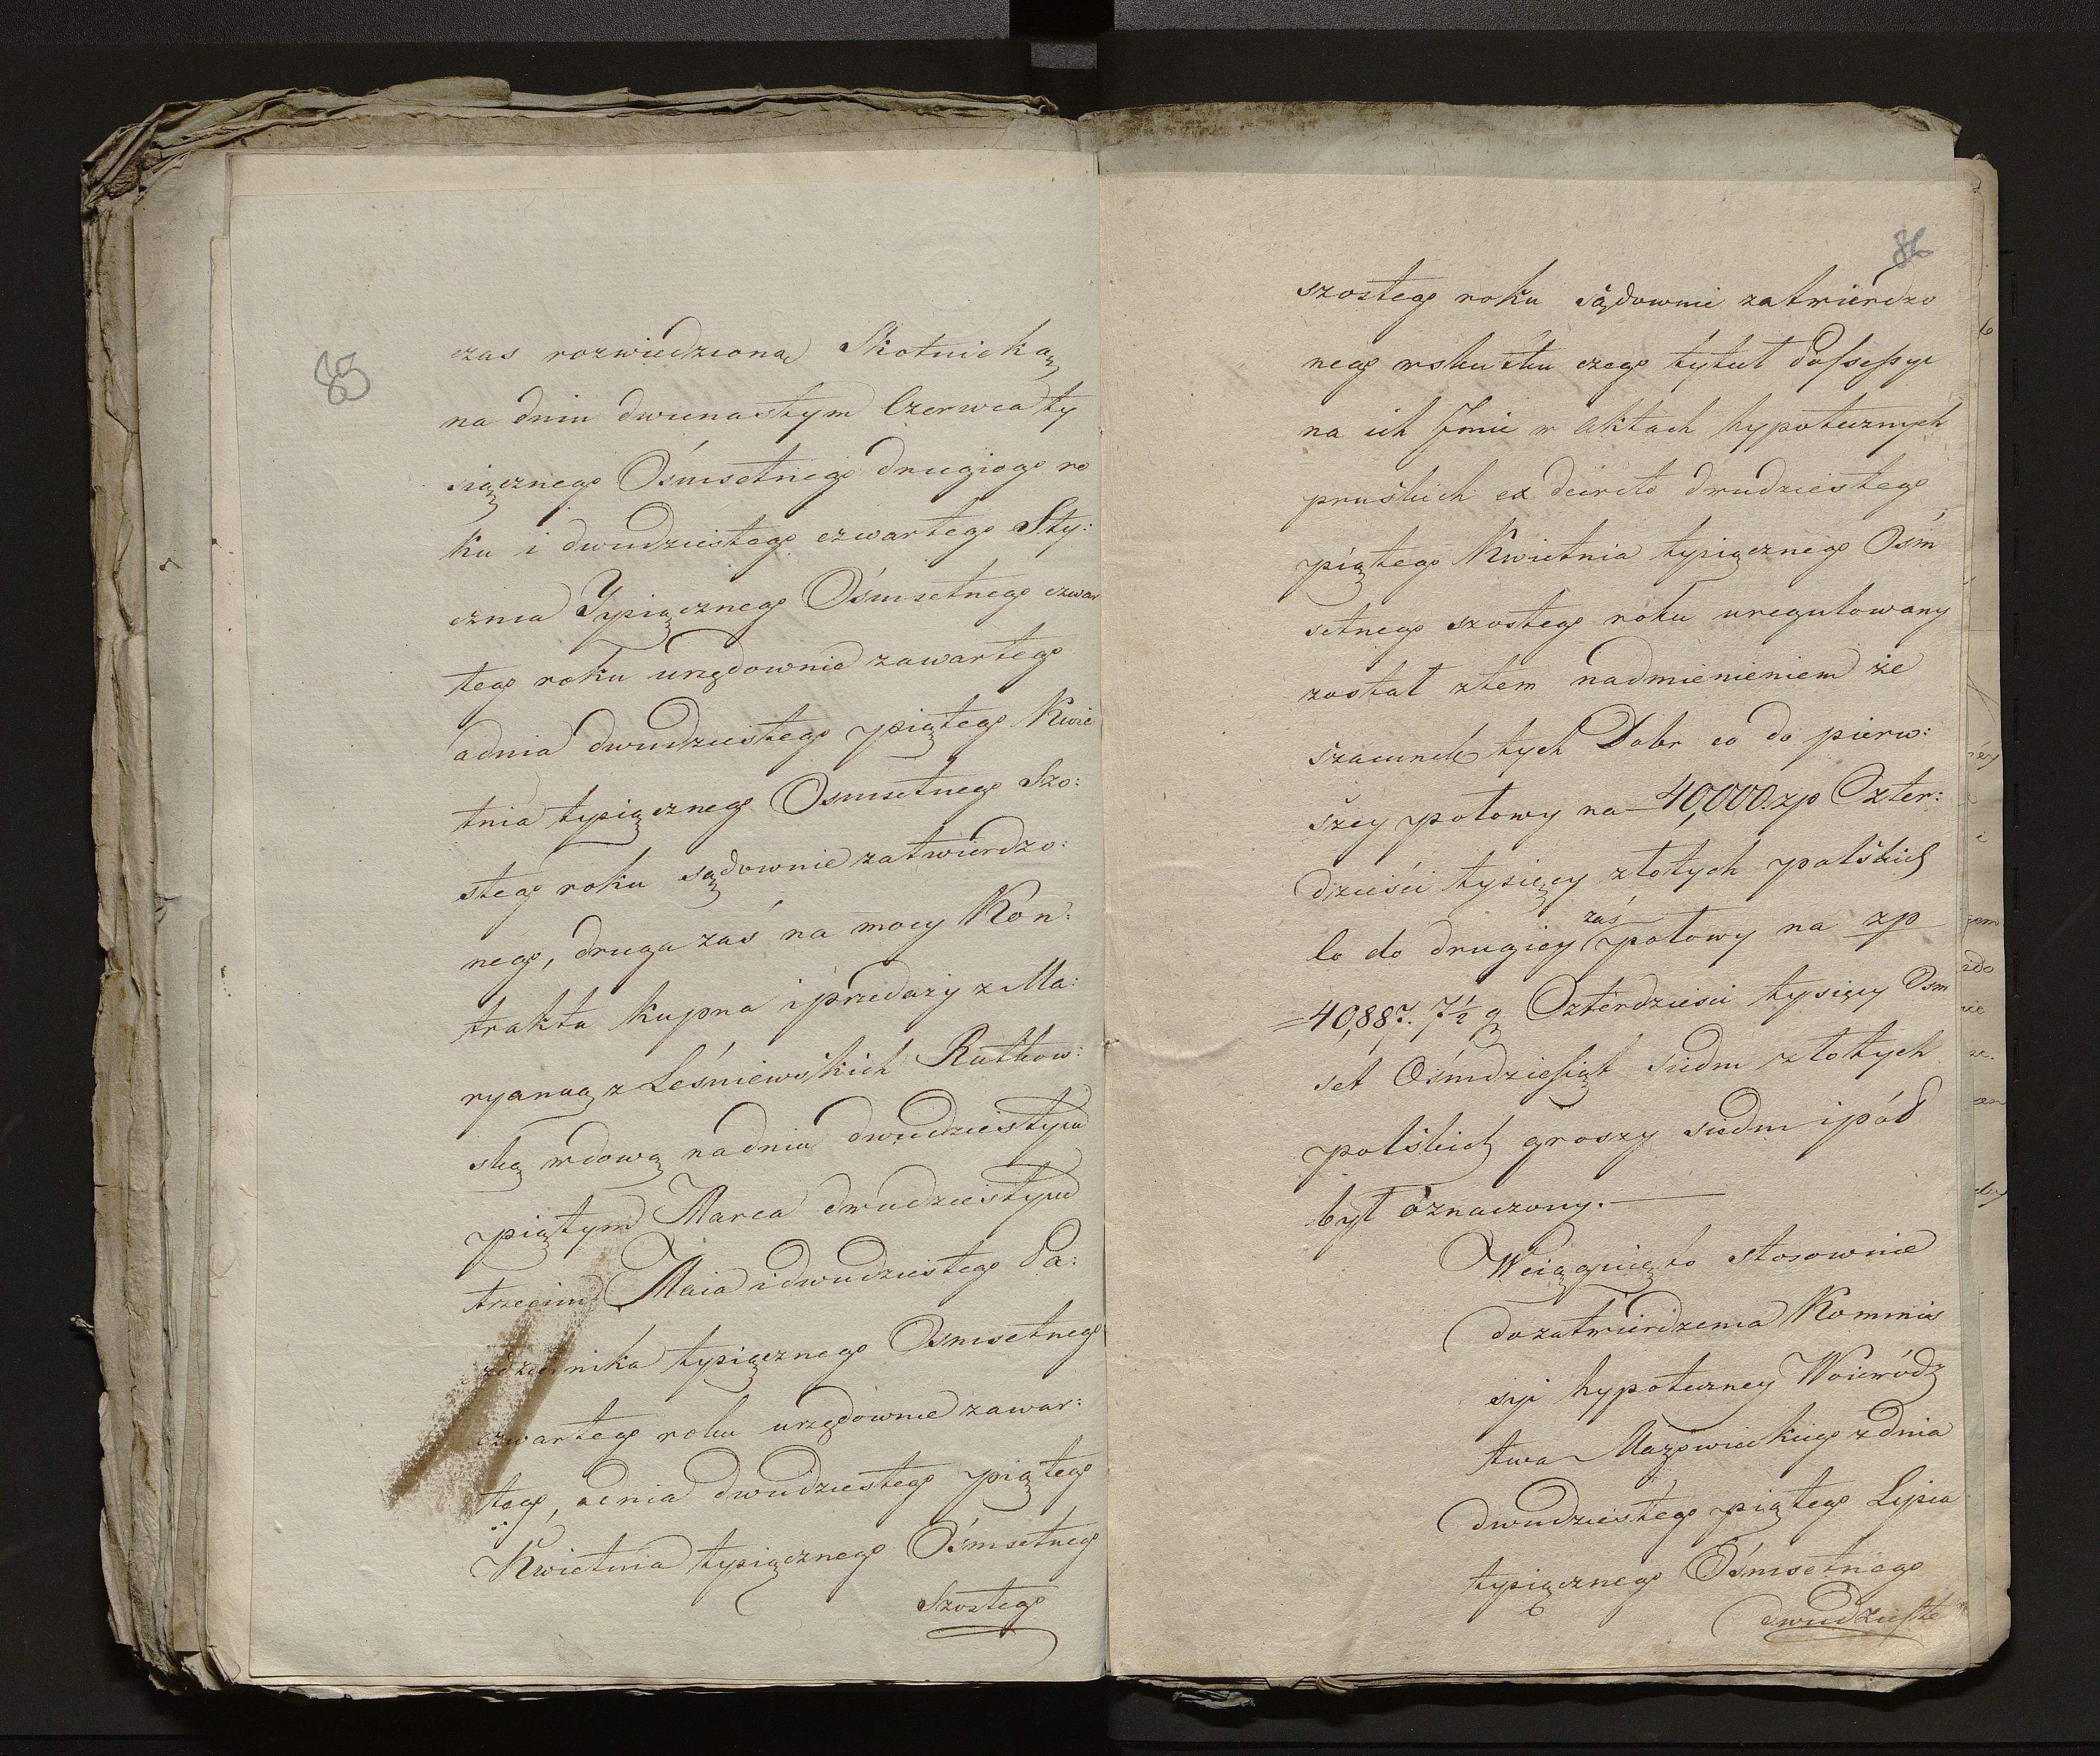 85
czas rozwiedzioną Skotnicką
na dniu dwunastym Czerwca ty
siącznego Ósmsetnego drugiego ro
ku i dwudziestego czwartego Sty:
cznia Tysiącznego Ósmsetnego czwar
tego roku urzędownie zawartego
a dnia dwudziestego piątego Kwie
tnia tysiącznego Osmsetnego Szo:
stego roku sądownie zatwierdzo:
nego, druga zaś na mocy Kon:
traktu kupna i przedaży z Ma:
ryanną z Leśniewskich Rutkow:
ską wdową na dniu dwudziestym
piątym Marca dwudziestym
trzecim Maia i dwudziestego Pa:
ździernika tysiącznego Osmsetnego
czwartego roku urzędownie zawar:
tego, a dnia dwudziestego piątego
Kwietnia tysiącznego Ósmsetnego
Szostego
86
szostego roku sądownie zatwierdzo
nego wskutku czego tytuł Possessyi
na ich Imie w Aktach hypotecznych
pruskich ex decreto dwudziestego
piątego Kwietnia tysiącznego Ósm
setnego szostego roku uregulowany
został z tem nadmienieniem że
szacunek tych Dobr co do pierw:
szey połowy na 40,000. zp Czter:
dzieści tysięcy złotych polskich
Co do drugiey zaś połowy na zp
40,887. 7½ g Czterdzieści tysięcy Osm
set Ośmdziesiąt siedm złotych
polskich groszy siedm i pół
był oznaczony.
Wciągnięto stosownie
do zatwierdzenia Kommis
syi hypoteczney Woiewódz
twa Mazowieckiego z dnia
dwudziestego piątego Lipca
tysiącznego Ósmsetnego
dwudzieste